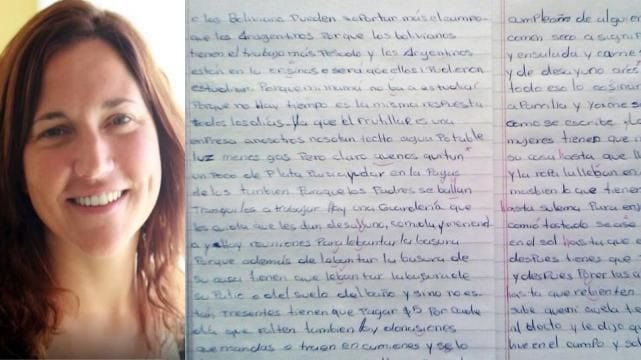 e los Bolivianos pueden soportar más el campo
que los Aragentinos porque los bolivianos
tienen el trabajo más Pesado y los Argentinos
estan en la oficinas o será que ellos pudieron
estudiar. Porque mi mamá no ba a estudiar
Porque no Hay tiempo es la misma respuesta
todos los días. ya que el frutillar es una
empresa a nosotros no sotan toctto agua Potable
luz menos gas Pero claro que nos quitan
un Poco de Plata Para ayudar en la Pagas
de los tambien Para que los Padres se ballan
tranquilos a trabajar Hay una Guardería que
los cuida que les dan desalluno, comida y meriend
a y Hay reuniones Para lebantar la basura
Porque además de lebantar la basura de
su casa tienen que lebantar la basura de
su Patio o del suelo del baño y si no es-
tan Presentes tienen que Pagar $5 Por cada
día que falten tambien Hay donasiones
que mandas o traen en camiones y se lo
cumpleaño de alguien
comen seco a signifi
y ensalada y carne
y de desayuno aros
todo eso lo cosinar
a Parrilla y
como se escribe y Lo
mujeres tienen que
su casa hasta que h
y la ropa la lleban en
mas bien lo que tienen
hasta su lema. Para
como tostado se ase
en el sol hasta que
despues tienes que
y despues Poner las a
hasta que rebienten
sube
al docto y le dijo q
vive en el campo y so